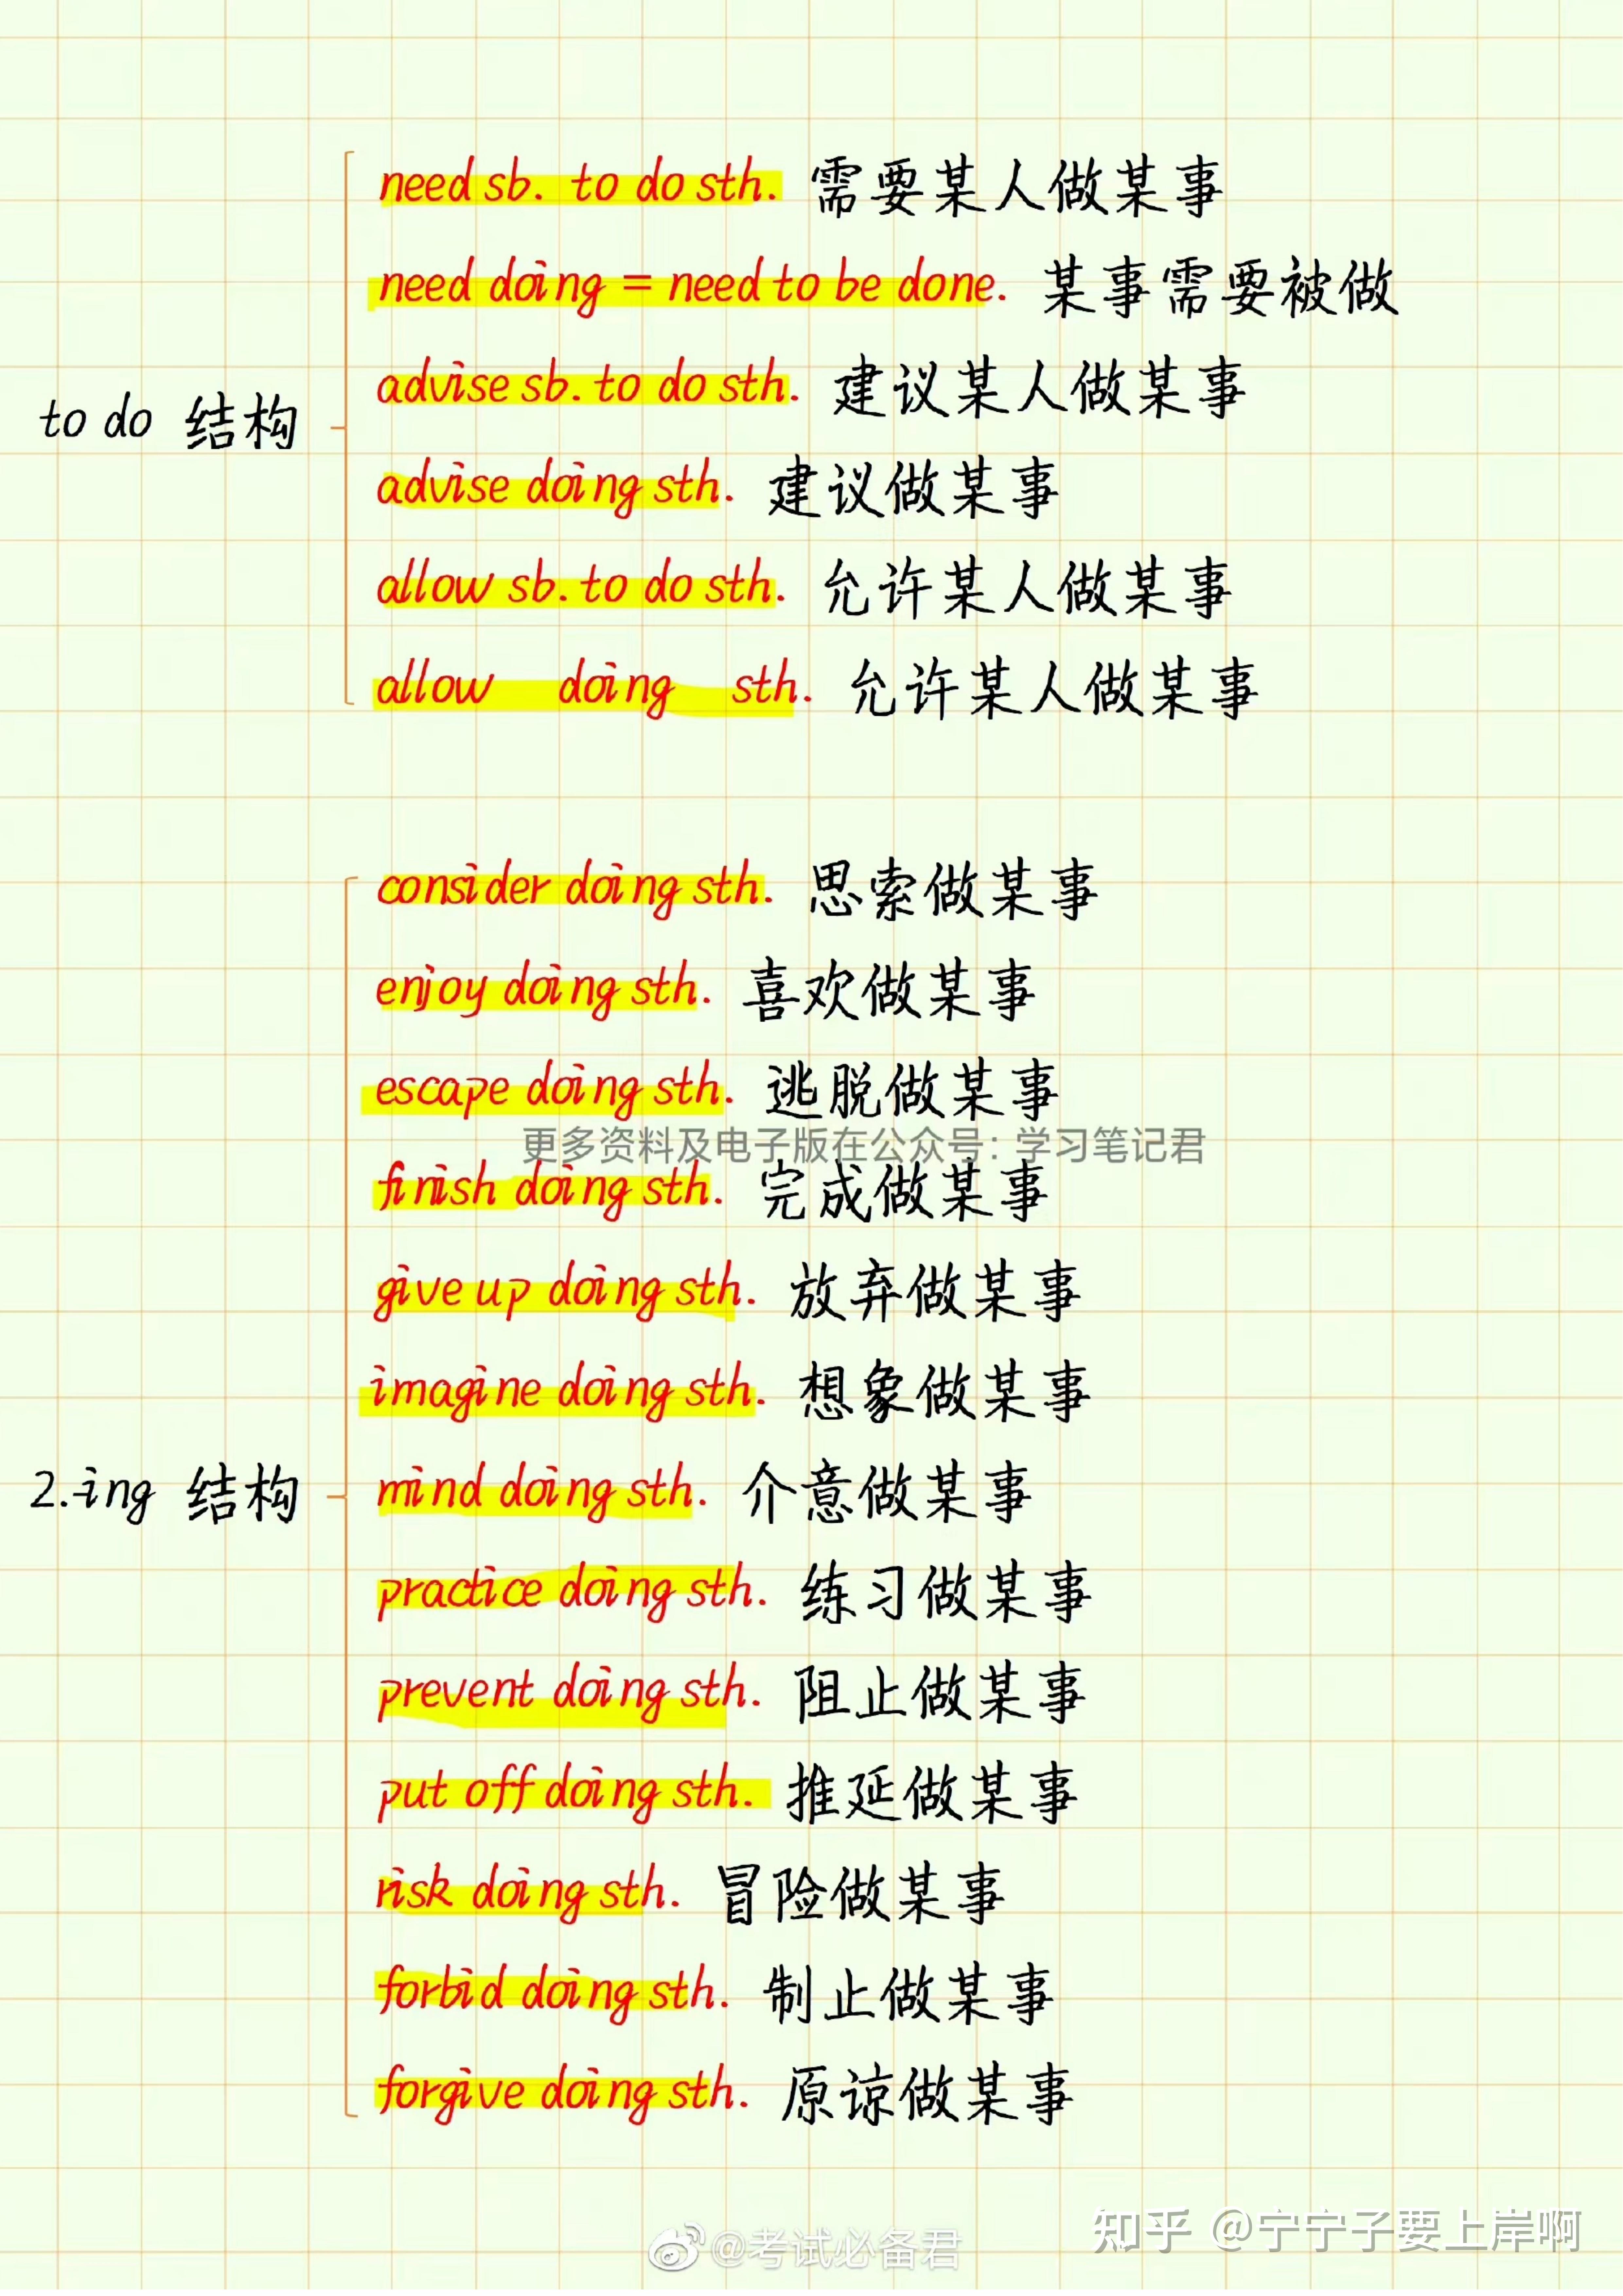 need sb. to do sth. 需要某人做某事
need doing = need to be done. 某事需要被做
advise sb. to do sth. 建议某人做某事
to do 结构
advise doing sth. 建议做某事
allow sb. to do sth. 允许某人做某事
allow doing sth. 允许某人做某事
consider doing sth. 思索做某事
enjoy doing sth. 喜欢做某事
escape doing sth. 逃脱做某事
更多资料及电子版在公众号：学习笔记君
finish doing sth. 完成做某事
give up doing sth. 放弃做某事
imagine doing sth. 想象做某事
2.-ing 结构
mind doing sth. 介意做某事
practice doing sth. 练习做某事
prevent doing sth. 阻止做某事
put off doing sth. 推延做某事
risk doing sth. 冒险做某事
forbid doing sth. 制止做某事
forgive doing sth. 原谅做某事
知乎 @宁宁子要上岸啊
@考试必备君